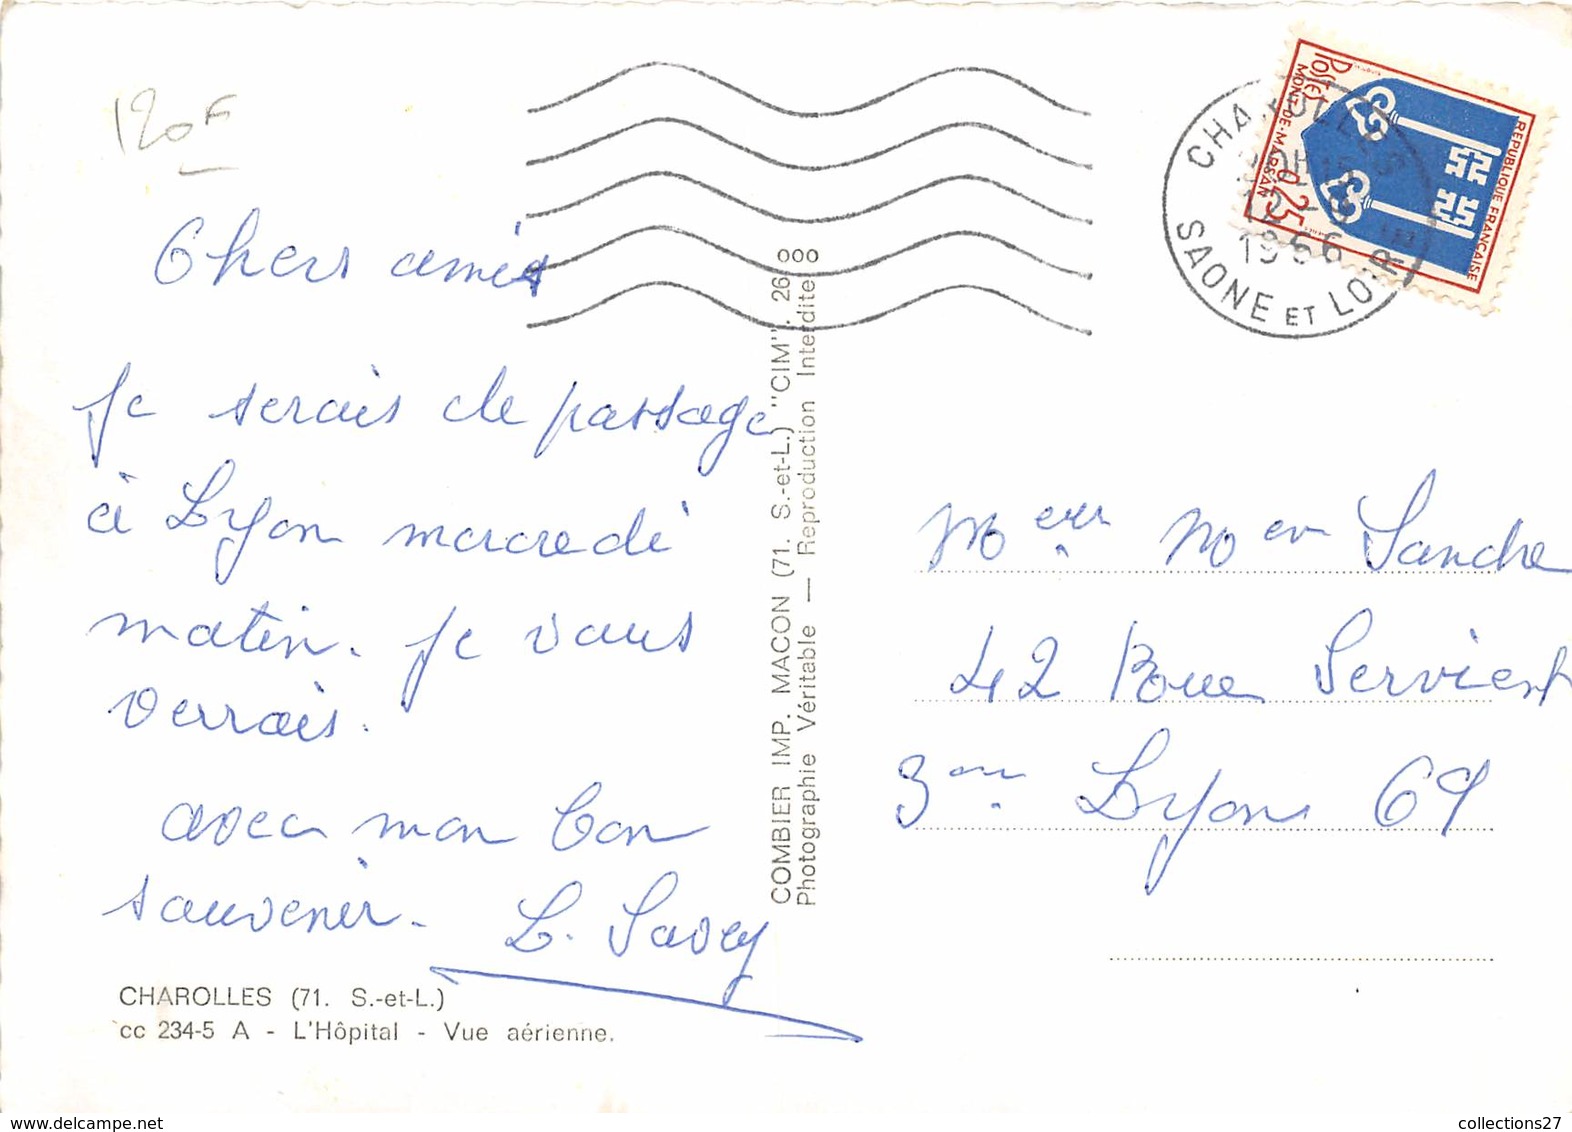 120F
Chers amis
Je serais de passage
à Lyon mercredi
matin. Je vous
verrais.
avec mon bon
souvenir.
L. Savey
CHAROLLES (71. S.-et-L.)
cc 234-5 A - L'Hôpital - Vue aérienne.
COMBIER IMP. MACON (71. S.-et-L.) "CIM". 26 000
Photographie Véritable — Reproduction Interdite
CHAROLLES
12
1966
SAONE ET LOIRE
POSTES
MONT-DE-MARSAN
0,25
REPUBLIQUE FRANÇAISE
42 Rue Servient
3me Lyon 69
collections27